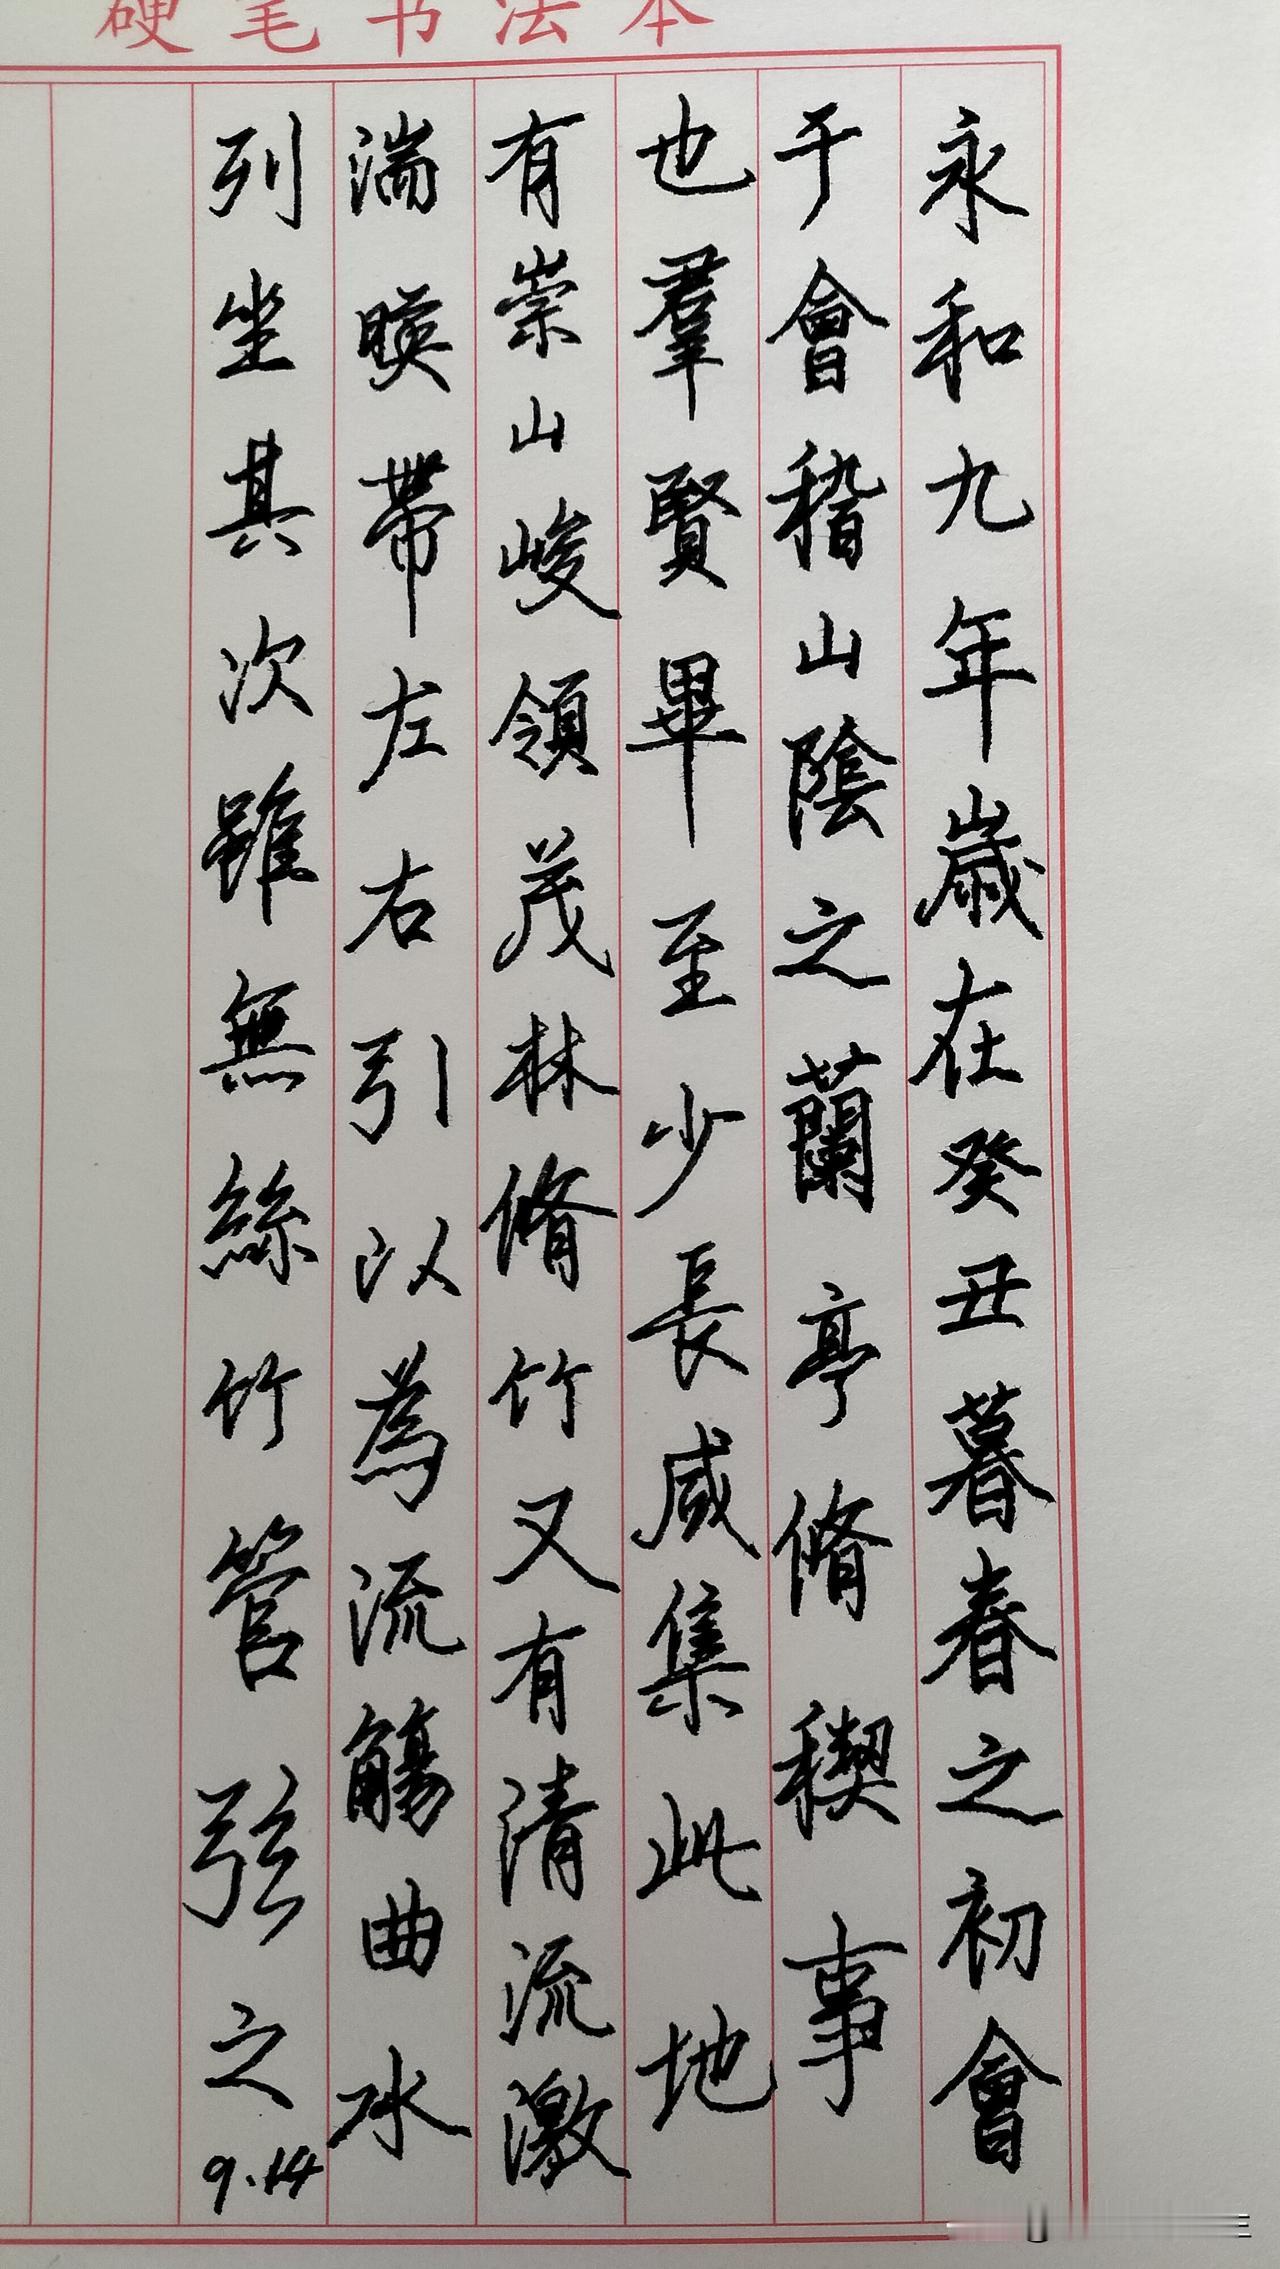 硬笔书法本
永和九年歲在癸丑暮春之初會
于會稽山陰之蘭亭脩稧事
也羣賢畢至少長咸集此地
有崇山峻領茂林脩竹又有清流激
湍暎帶左右引以為流觴曲水
列坐其次雖無絲竹管弦之
9.14